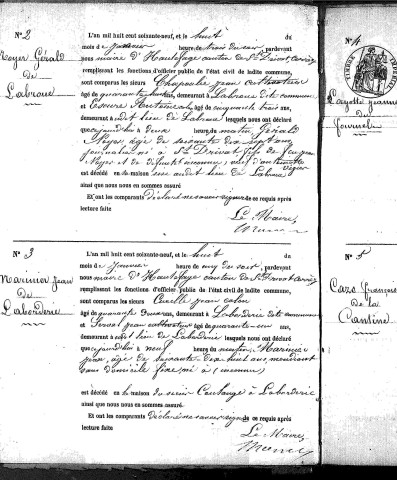 N° 2
Noyer Gérald
de
Labroue
L'an mil huit cent soixante-neuf, et le huit du
mois de janvier heure de trois du soir, pardevant
nous maire d'Hautefage canton de St Privat, Corrèze
remplissant les fonctions d'officier public de l'état civil de ladite commune,
sont comparus les sieurs cultivateur
âgé de quarante ans, demeurant à Labroue dite commune
et âgé de cinquante trois ans,
demeurant audit lieu de Labroue lesquels nous ont déclaré
que aujourd'hui à deux heures du matin Gérald
Noyer, âgé de soixante dix sept ans
né à St Privat fils de
Noyer et de défunte inconnue, veuf d'antoinette
est décédé en sa maison sise audit lieu de Labroue
ainsi que nous nous en sommes assuré
Et ont les comparants déclaré ne savoir signer de ce requis après
lecture faite
Le Maire,
N° 3
Marinier Jean
de
Laborderie
L'an mil huit cent soixante-neuf, et le huit du
mois de janvier heure de cinq du soir, pardevant
nous maire d'Hautefage canton de St Privat, Corrèze
remplissant les fonctions d'officier public de l'état civil de ladite commune
sont comparus les sieurs jean colon
âgé de quarante ans, demeurant à Laborderie dite commune
et jean cultivateur âgé de quarante-un ans,
demeurant audit lieu de Laborderie lesquels nous ont déclaré
que aujourd'hui à neuf heures du matin, Marinier
jean, âgé de soixante dix huit ans, mendiant
sans domicile fixe, né à (inconnu)
est décédé en la maison du sieur Coulange à Laborderie
ainsi que nous nous en sommes assuré.
Et ont les comparants déclaré ne savoir signer de ce requis après
lecture faite
Le Maire,
N° 4
jeanne
du
N° 5
Caze François
de la
Cantine